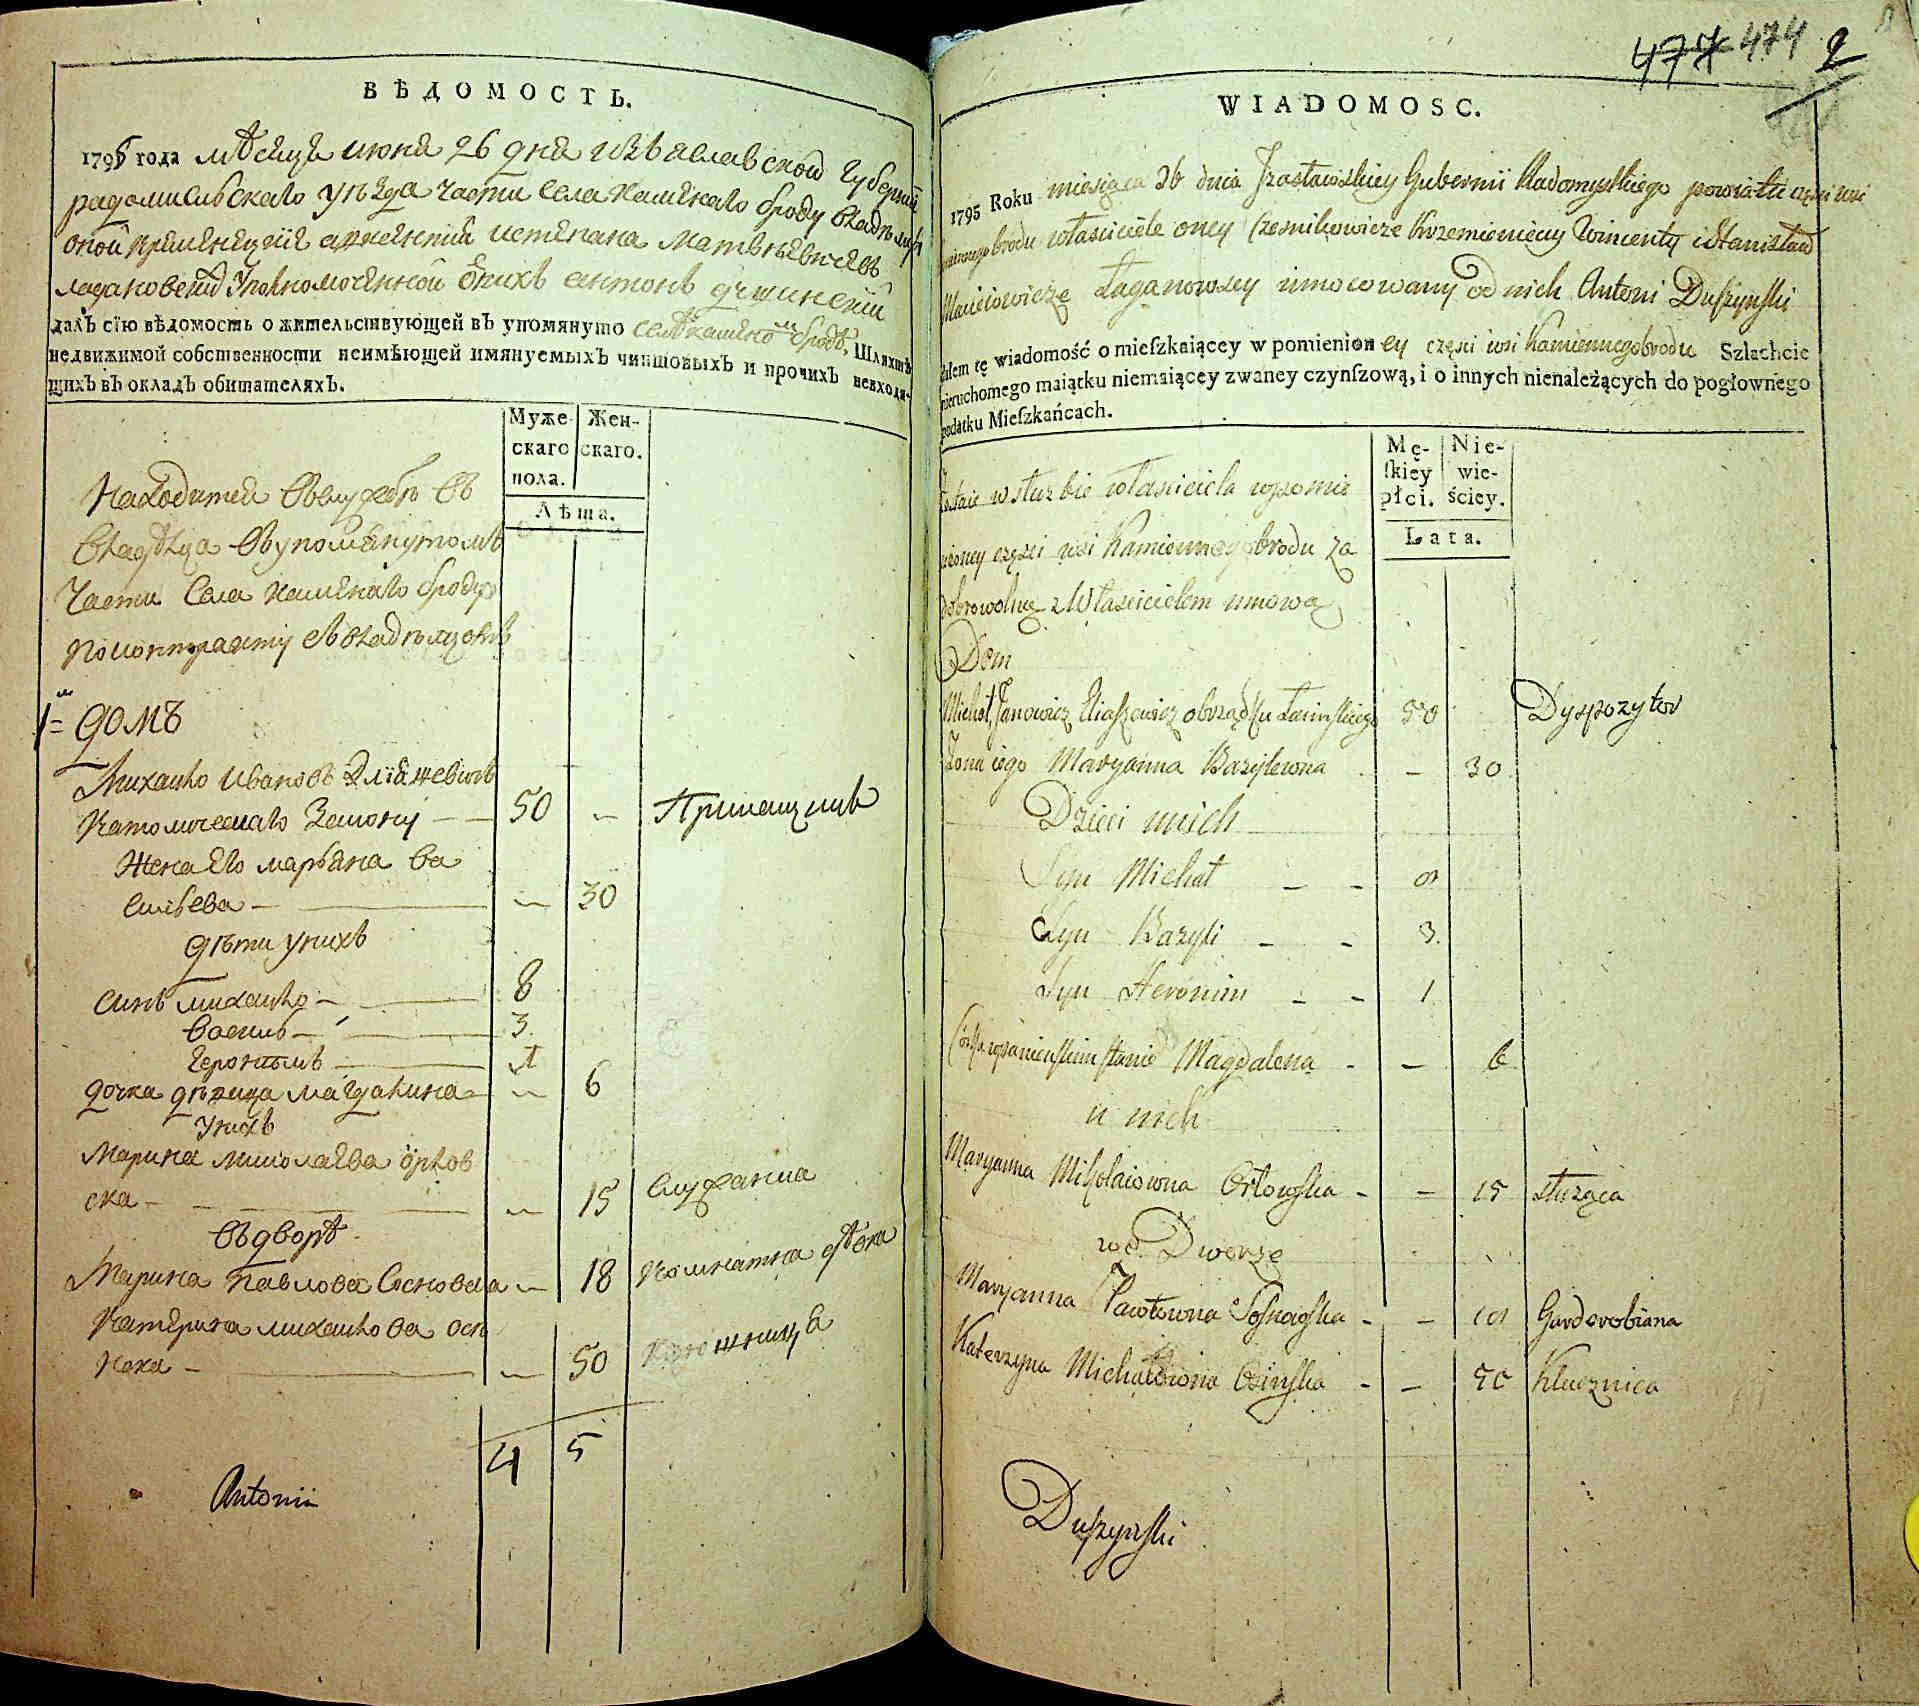 ВѢДОМОСТЬ.
1795 года мѣсяца июня 26 дня Изъяславской Губернїи
радомисльскаго уѣзда части села каменаго броду
Матвѣевичевъ
Уполномоченной Антонъ
далъ сїю вѣдомость о жительствующей въ упомянуто селѣ каменомъ бродѣ, Шляхтѣ
недвижимой собственности неимѣющей имянуемыхъ чиншовыхъ и прочихъ невходя-
щихъ въ окладъ обитателяхъ.
Муже-
скаго
пола.
Жен-
скаго.
Лѣта.
Находится въ службѣ въ
владѣлца въ упомянутомъ
части села каменаго броду
1 домъ
Михайло Ивановъ Элїяшевичъ
50
Жена его марьяна ва
сильева — 30
дѣти у нихъ
синъ михайло — 8
василь — 3
Геронимъ — 1
дочка дѣвица магдалина — 6
у нихъ
Марина николаева орлов
ска — 15 служаща
въ дворѣ
Марина павлова Сосновска — 18 комнатна дѣвка
Катерина михайлова осѣ
нска — 50 ключница
4 5
Antonii
477 474 2
WIADOMOSC.
1795 Roku miesiąca 26 dnia Izasławskiey Gubernii Radomyslkiego powiatu części wsi
kamiennego brodu własciciele oney Czesnikowicze Krzemienieccy Wincenty i Stanisław
Maciciowicze Łaganowscy umocowany od nich Antoni Duszynski
dałem tę wiadomość o mieſzkaiącey w pomienioney części wsi Kamiennegobrodu Szlachcie
nieruchomego maiątku niemaiącey zwaney czynſzową, i o innych nienależących do pogłownego
podatku Mieſzkańcach.
Mę-
ſkiey
płci.
Nie-
wie-
ściey.
Lata.
Zostaie w słuzbie własciciela wspomie
nioney części wsi Kamiennegobrodu za
dobrowolną z Własciicielem umową
Dom
Michał Janowicz Eliaszewicz obrządku Łacinskiego 50 Dyspozytor
Zona iego Maryanna Bazylewna — 30
Dzieci u nich
Syn Michał — 8
Syn Bazyli — 3
Syn Heronim — 1
Córka w panienskim stanie Magdalena — 6
u nich
Maryanna Mikołaiowna Orłowska — 15 słuząca
we Dworze
Maryanna Pawłowna Sosnowska — 18 Gardorobiana
Katerzyna Michałowna Osinska — 50 Klucznica
Duszynski